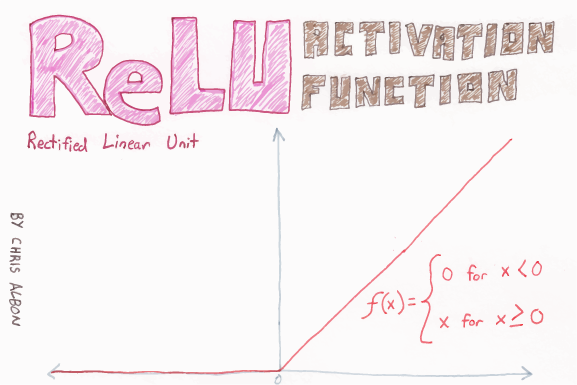 ReLU ACTIVATION FUNCTION
Rectified Linear Unit
BY CHRIS ALBON
f(x)= { 0 for x<0
x for x≥0
0